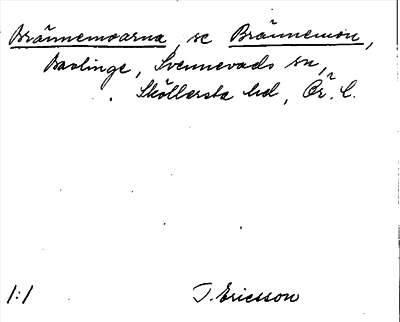 Brännemoarna, se Brännemon,
Baslinge, Svennevads sn,
Sköllersta hd, Ör. l.
1:1 J. Ericsson